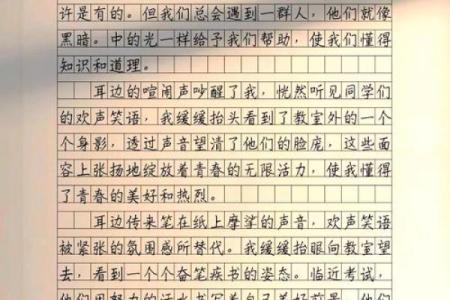 许是有的。但我们总会遇到一群人，他们就像
黑暗。中的光一样给予我们帮助，使我们懂得
知识和道理。
耳边的喧闹声吵醒了我，恍然听见同学们
的欢声笑语，我缓缓抬头看到了教室外的一个
个身影，透过声音望清了他们的脸庞，这些面
容上张扬地绽放着青春的无限活力，使我懂得
了青春的美好和热烈。
耳边传来笔在纸上摩挲的声音，欢声笑语
被紧张的氛围感所替代。我缓缓抬眼向教室望
去，看到一个个奋笔疾书的姿态。临近考试，
他们用努力的汗水书写着自己美好前景，他们